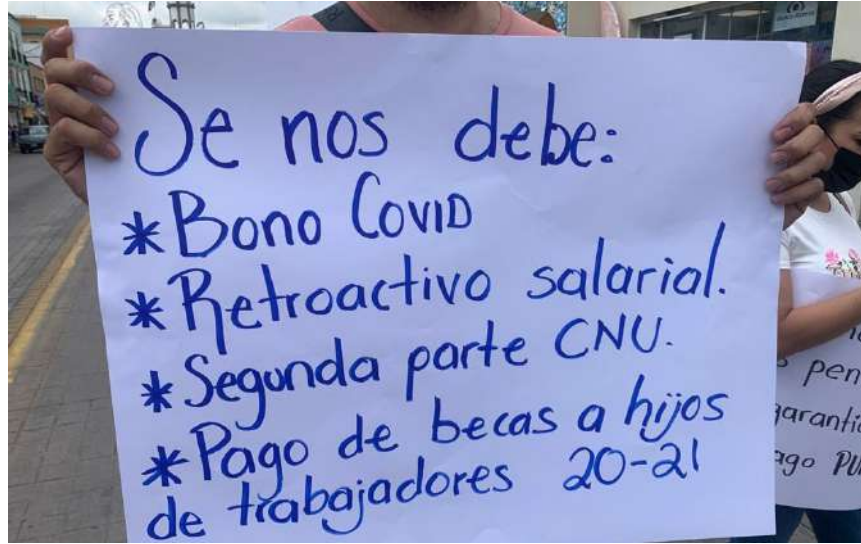 Se nos debe:
* Bono COVID
* Retroactivo salarial.
* Segunda parte CNU.
* Pago de becas a hijos
de trabajadores 20-21